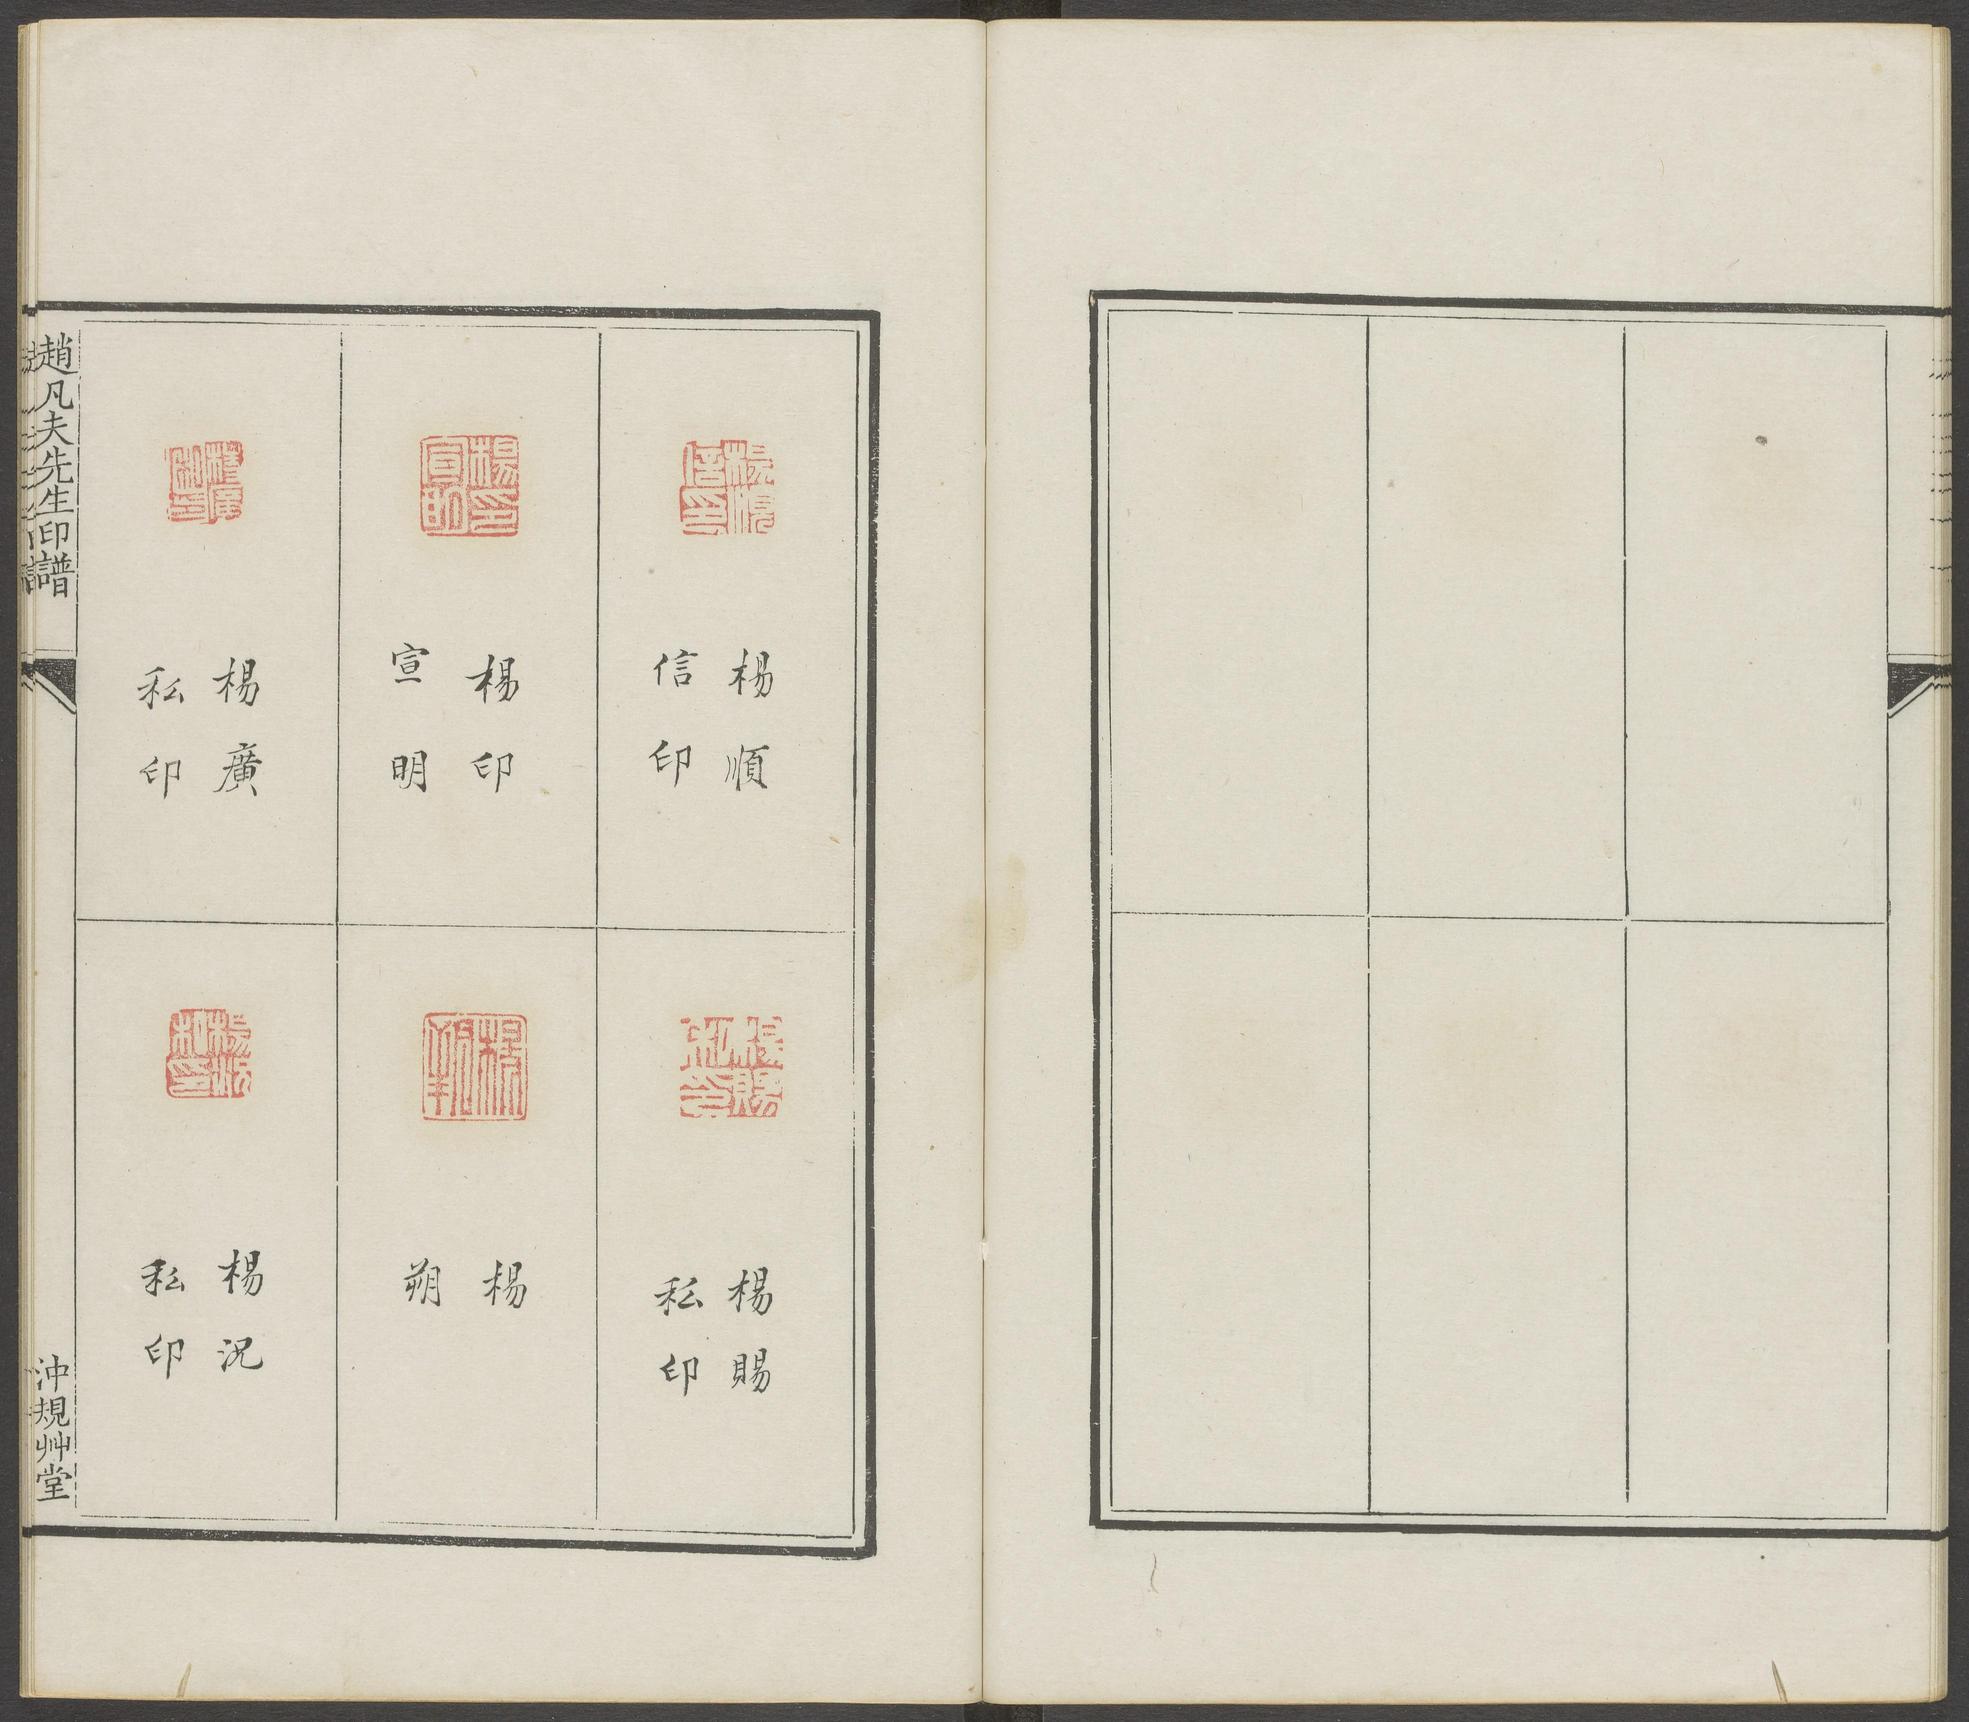 楊順
信印
楊賜
私印
楊印
宣明
楊
朔
楊廣
私印
楊況
私印
趙凡夫先生印譜
沖規艸堂